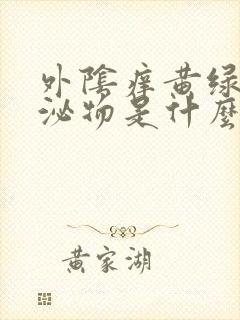 外陰痒黄绿
泌物是什麼
黄家湖